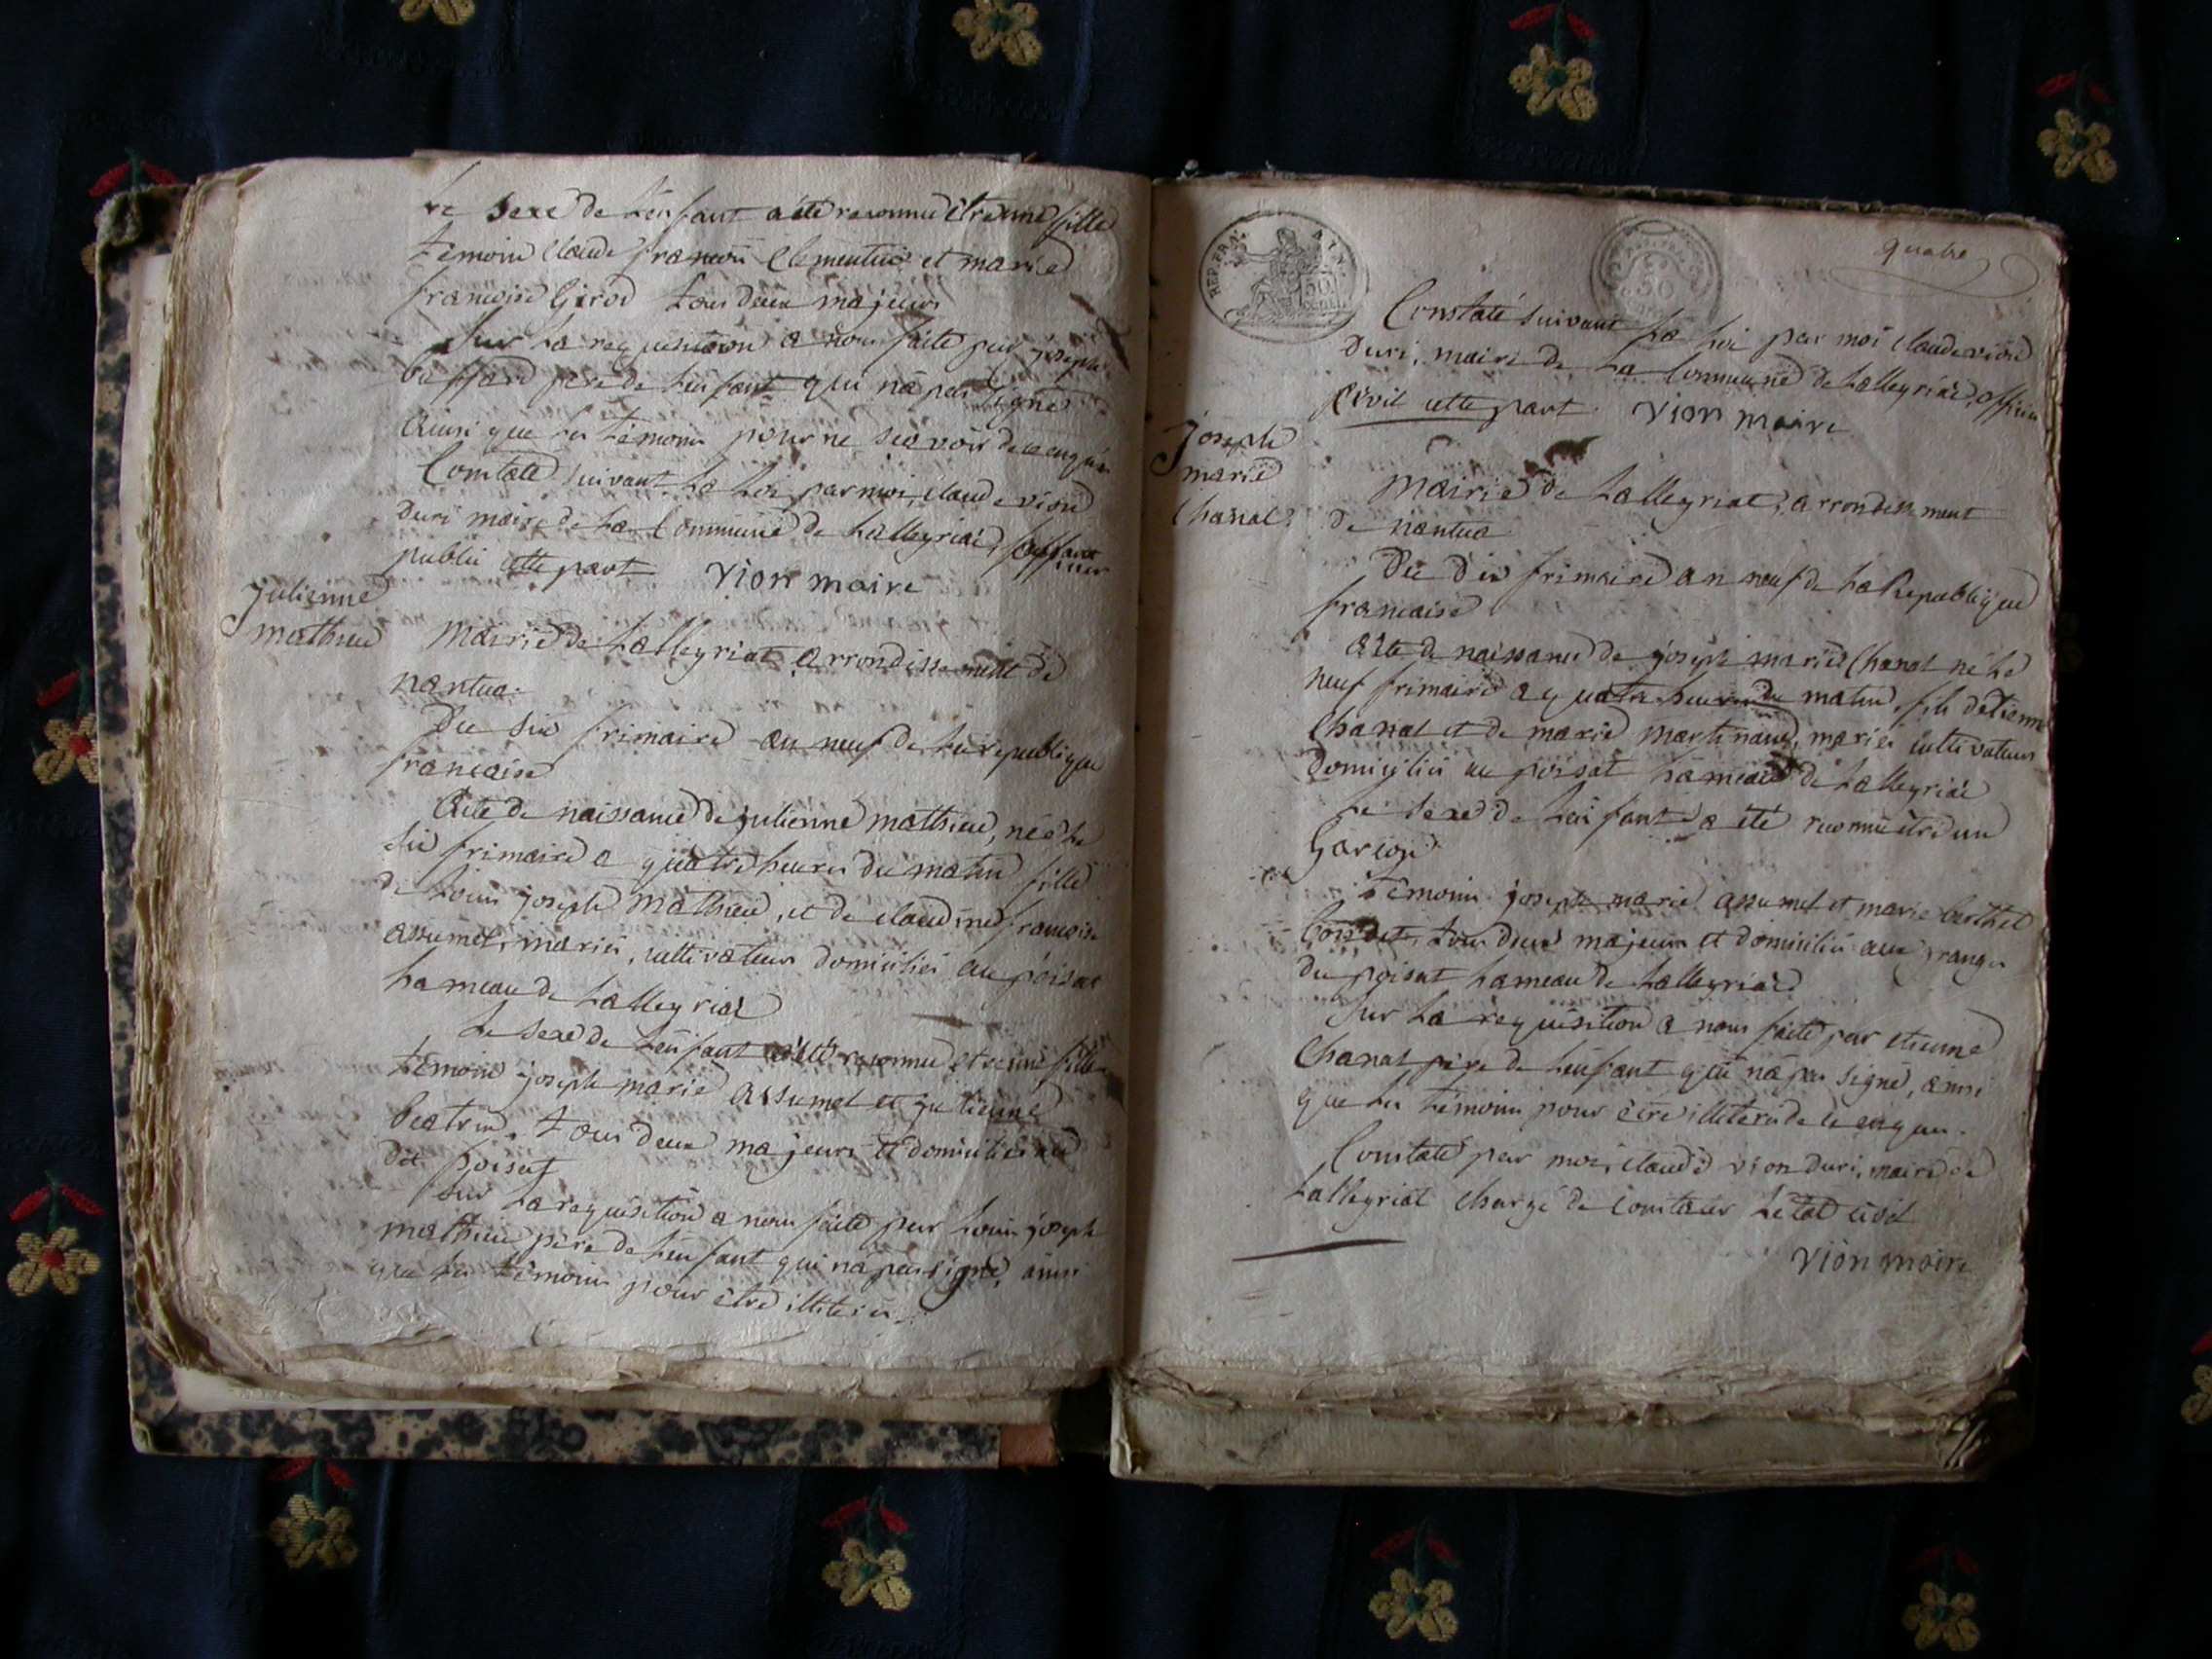 Le Sexe de Lenfant a été reconnu être une fille
témoins Claude francois Clementin et marie
francoise Girod tous deux majeurs
Sur La requisition a nous faite par joseph
buffard pere de Lenfant qui n'a pas signé
ainsi que les témoins pour ne scavoir de ce enquis
Constaté suivant La Loi par moi, claude vion
Duri maire de La Commune de Lalleyriat, officier
public cette part Vion maire
Julienne
mathieu
Mairie de Lalleyriat arrondissement de
nantua
Du Six frimaire an neuf de La republique
francaise
Acte de naissance de julienne mathieu, née Le
six frimaire a quatre heures du matin fille
de Louis joseph mathieu, et de claudine francoise
assumel, mariés, cultivateurs domiciliés au poisat
hameau de Lalleyriat
Le sexe de Lenfant a été reconnu etre une fille
témoins joseph marie assumel et julienne
beatrix, tous deux majeurs et domiciliés au
dit poisat
Sur La requisition a nous faite par Louis joseph
mathieu père de Lenfant qui n'a pas signé, ainsi
que les témoins pour être illiterés
quatre
REP. FRA.
50
Constaté suivant La Loi par moi claude vion
Duri, maire de La Commune de Lalleyriat, officier
civil cette part Vion maire
Joseph
marie
Chanal
Mairie de Lalleyriat, arrondissement
de nantua
Du dix frimaire an neuf de La Republique
francaise
Acte de naissance de joseph marie Chanal né Le
neuf frimaire a quatre heures du matin, fils detienne
Chanal et de marie martinand, mariés cultivateurs
Domiciliés au poisat hameau de Lalleyriat
Le sexe de Lenfant a été reconnu être un
Garcon
Témoins joseph marie assumel et marie berthet
tous deux majeurs et domiciliés aux granges
du poisat hameau de Lalleyriat
Sur La requisition a nous faite par etienne
Chanal père de Lenfant qui n'a pas signé, ainsi
que les témoins pour être illiterés de ce enquis
Constaté par moi, claude vion duri, maire de
Lalleyriat chargé de constater Létat civil
Vion maire